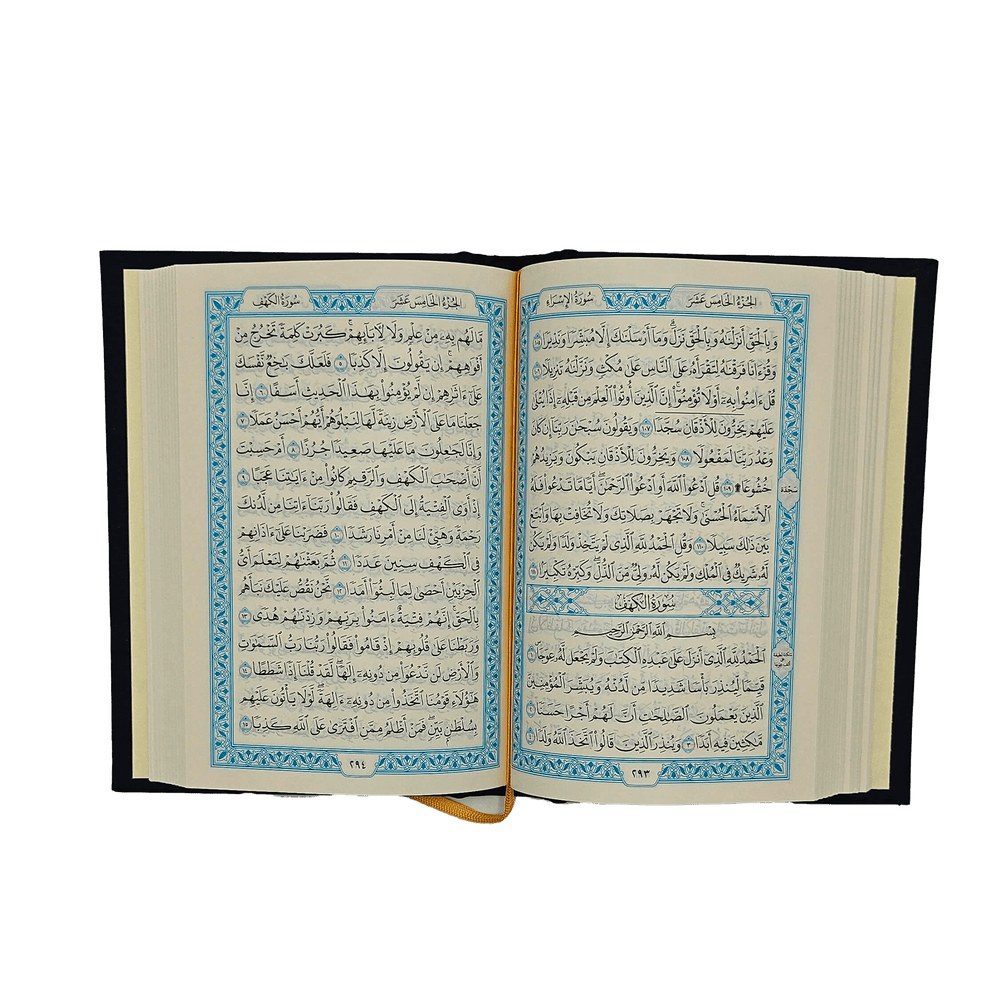 سُورَةُ الإِسْرَاء
الجُزْءُ الخَامِسَ عَشَرَ
وَبِٱلْحَقِّ أَنزَلْنَٰهُ وَبِٱلْحَقِّ نَزَلَ ۗ وَمَآ أَرْسَلْنَٰكَ إِلَّا مُبَشِّرًا وَنَذِيرًا ١٠٥
وَقُرْءَانًا فَرَقْنَٰهُ لِتَقْرَأَهُۥ عَلَى ٱلنَّاسِ عَلَىٰ مُكْثٍ وَنَزَّلْنَٰهُ تَنزِيلًا ١٠٦
قُلْ ءَامِنُوا۟ بِهِۦٓ أَوْ لَا تُؤْمِنُوٓا۟ ۚ إِنَّ ٱلَّذِينَ أُوتُوا۟ ٱلْعِلْمَ مِن قَبْلِهِۦٓ إِذَا يُتْلَىٰ
عَلَيْهِمْ يَخِرُّونَ لِلْأَذْقَانِ سُجَّدًا ١٠٧ وَيَقُولُونَ سُبْحَٰنَ رَبِّنَآ إِن كَانَ
وَعْدُ رَبِّنَا لَمَفْعُولًا ١٠٨ وَيَخِرُّونَ لِلْأَذْقَانِ يَبْكُونَ وَيَزِيدُهُمْ
خُشُوعًا ۩ ١٠٩ قُلِ ٱدْعُوا۟ ٱللَّهَ أَوِ ٱدْعُوا۟ ٱلرَّحْمَٰنَ ۖ أَيًّا مَّا تَدْعُوا۟ فَلَهُ
ٱلْأَسْمَآءُ ٱلْحُسْنَىٰ ۚ وَلَا تَجْهَرْ بِصَلَاتِكَ وَلَا تُخَافِتْ بِهَا وَٱبْتَغِ
بَيْنَ ذَٰلِكَ سَبِيلًا ١١٠ وَقُلِ ٱلْحَمْدُ لِلَّهِ ٱلَّذِى لَمْ يَتَّخِذْ وَلَدًا وَلَمْ يَكُن
لَّهُۥ شَرِيكٌ فِى ٱلْمُلْكِ وَلَمْ يَكُن لَّهُۥ وَلِىٌّ مِّنَ ٱلذُّلِّ ۖ وَكَبِّرْهُ تَكْبِيرًۢا ١١١
سُورَةُ الكَهْفِ
بِسْمِ ٱللَّهِ ٱلرَّحْمَٰنِ ٱلرَّحِيمِ
ٱلْحَمْدُ لِلَّهِ ٱلَّذِىٓ أَنزَلَ عَلَىٰ عَبْدِهِ ٱلْكِتَٰبَ وَلَمْ يَجْعَل لَّهُۥ عِوَجَا ۜ ١
قَيِّمًا لِّيُنذِرَ بَأْسًا شَدِيدًا مِّن لَّدُنْهُ وَيُبَشِّرَ ٱلْمُؤْمِنِينَ
ٱلَّذِينَ يَعْمَلُونَ ٱلصَّٰلِحَٰتِ أَنَّ لَهُمْ أَجْرًا حَسَنًا ٢
مَّٰكِثِينَ فِيهِ أَبَدًا ٣ وَيُنذِرَ ٱلَّذِينَ قَالُوا۟ ٱتَّخَذَ ٱللَّهُ وَلَدًا ٤
٢٩٣
سَجْدَة
سُورَةُ الكَهْفِ
الجُزْءُ الخَامِسَ عَشَرَ
مَّا لَهُم بِهِۦ مِنْ عِلْمٍ وَلَا لِءَابَآئِهِمْ ۚ كَبُرَتْ كَلِمَةً تَخْرُجُ مِنْ
أَفْوَٰهِهِمْ ۚ إِن يَقُولُونَ إِلَّا كَذِبًا ٥ فَلَعَلَّكَ بَٰخِعٌ نَّفْسَكَ
عَلَىٰٓ ءَاثَٰرِهِمْ إِن لَّمْ يُؤْمِنُوا۟ بِهَٰذَا ٱلْحَدِيثِ أَسَفًا ٦ إِنَّا
جَعَلْنَا مَا عَلَى ٱلْأَرْضِ زِينَةً لَّهَا لِنَبْلُوَهُمْ أَيُّهُمْ أَحْسَنُ عَمَلًا ٧
وَإِنَّا لَجَٰعِلُونَ مَا عَلَيْهَا صَعِيدًا جُرُزًا ٨ أَمْ حَسِبْتَ
أَنَّ أَصْحَٰبَ ٱلْكَهْفِ وَٱلرَّقِيمِ كَانُوا۟ مِنْ ءَايَٰتِنَا عَجَبًا ٩
إِذْ أَوَى ٱلْفِتْيَةُ إِلَى ٱلْكَهْفِ فَقَالُوا۟ رَبَّنَآ ءَاتِنَا مِن لَّدُنكَ
رَحْمَةً وَهَيِّئْ لَنَا مِنْ أَمْرِنَا رَشَدًا ١٠ فَضَرَبْنَا عَلَىٰٓ ءَاذَانِهِمْ
فِى ٱلْكَهْفِ سِنِينَ عَدَدًا ١١ ثُمَّ بَعَثْنَٰهُمْ لِنَعْلَمَ أَىُّ
ٱلْحِزْبَيْنِ أَحْصَىٰ لِمَا لَبِثُوٓا۟ أَمَدًا ١٢ نَّحْنُ نَقُصُّ عَلَيْكَ نَبَأَهُم
بِٱلْحَقِّ ۚ إِنَّهُمْ فِتْيَةٌ ءَامَنُوا۟ بِرَبِّهِمْ وَزِدْنَٰهُمْ هُدًى ١٣
وَرَبَطْنَا عَلَىٰ قُلُوبِهِمْ إِذْ قَامُوا۟ فَقَالُوا۟ رَبُّنَا رَبُّ ٱلسَّمَٰوَٰتِ
وَٱلْأَرْضِ لَن نَّدْعُوَا۟ مِن دُونِهِۦٓ إِلَٰهًا ۖ لَّقَدْ قُلْنَآ إِذًا شَطَطًا ١٤
هَٰٓؤُلَآءِ قَوْمُنَا ٱتَّخَذُوا۟ مِن دُونِهِۦٓ ءَالِهَةً ۖ لَّوْلَا يَأْتُونَ عَلَيْهِم
بِسُلْطَٰنٍۭ بَيِّنٍ ۖ فَمَنْ أَظْلَمُ مِمَّنِ ٱفْتَرَىٰ عَلَى ٱللَّهِ كَذِبًا ١٥
٢٩٤